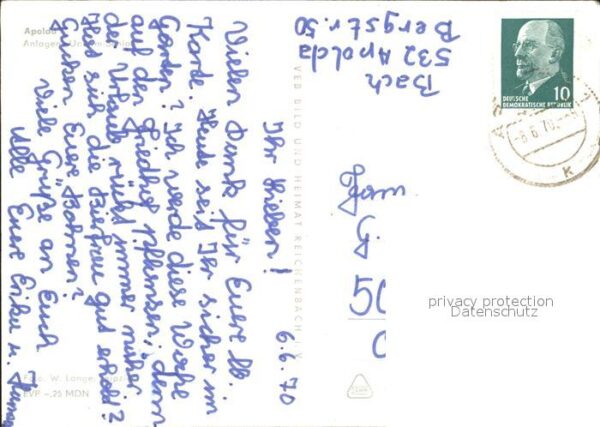 Apolda
Anlagen Unterm Schloß
Bach
532 Apolda
Bergstr. 50
6.6.70
Ihr Lieben!
Vielen Dank für Euere lb.
Karte. Heute seid Ihr sicher im
Garten? Ich werde diese Woche
auf den Friedhof pflanzen, denn
der Urlaub rückt immer näher.
Hat sich die Bierfrau gut erholt?
Gucken Eure Bohnen?
Viele Grüße an Euch
Alle Euere Erika u.
VEB BILD UND HEIMAT REICHENBACH I. V.
Foto: W. Lange,
EVP -,25 MDN
10
DEUTSCHE
DEMOKRATISCHE REPUBLIK
-6.6.70
K
Fam
G.
50
privacy protection
Datenschutz